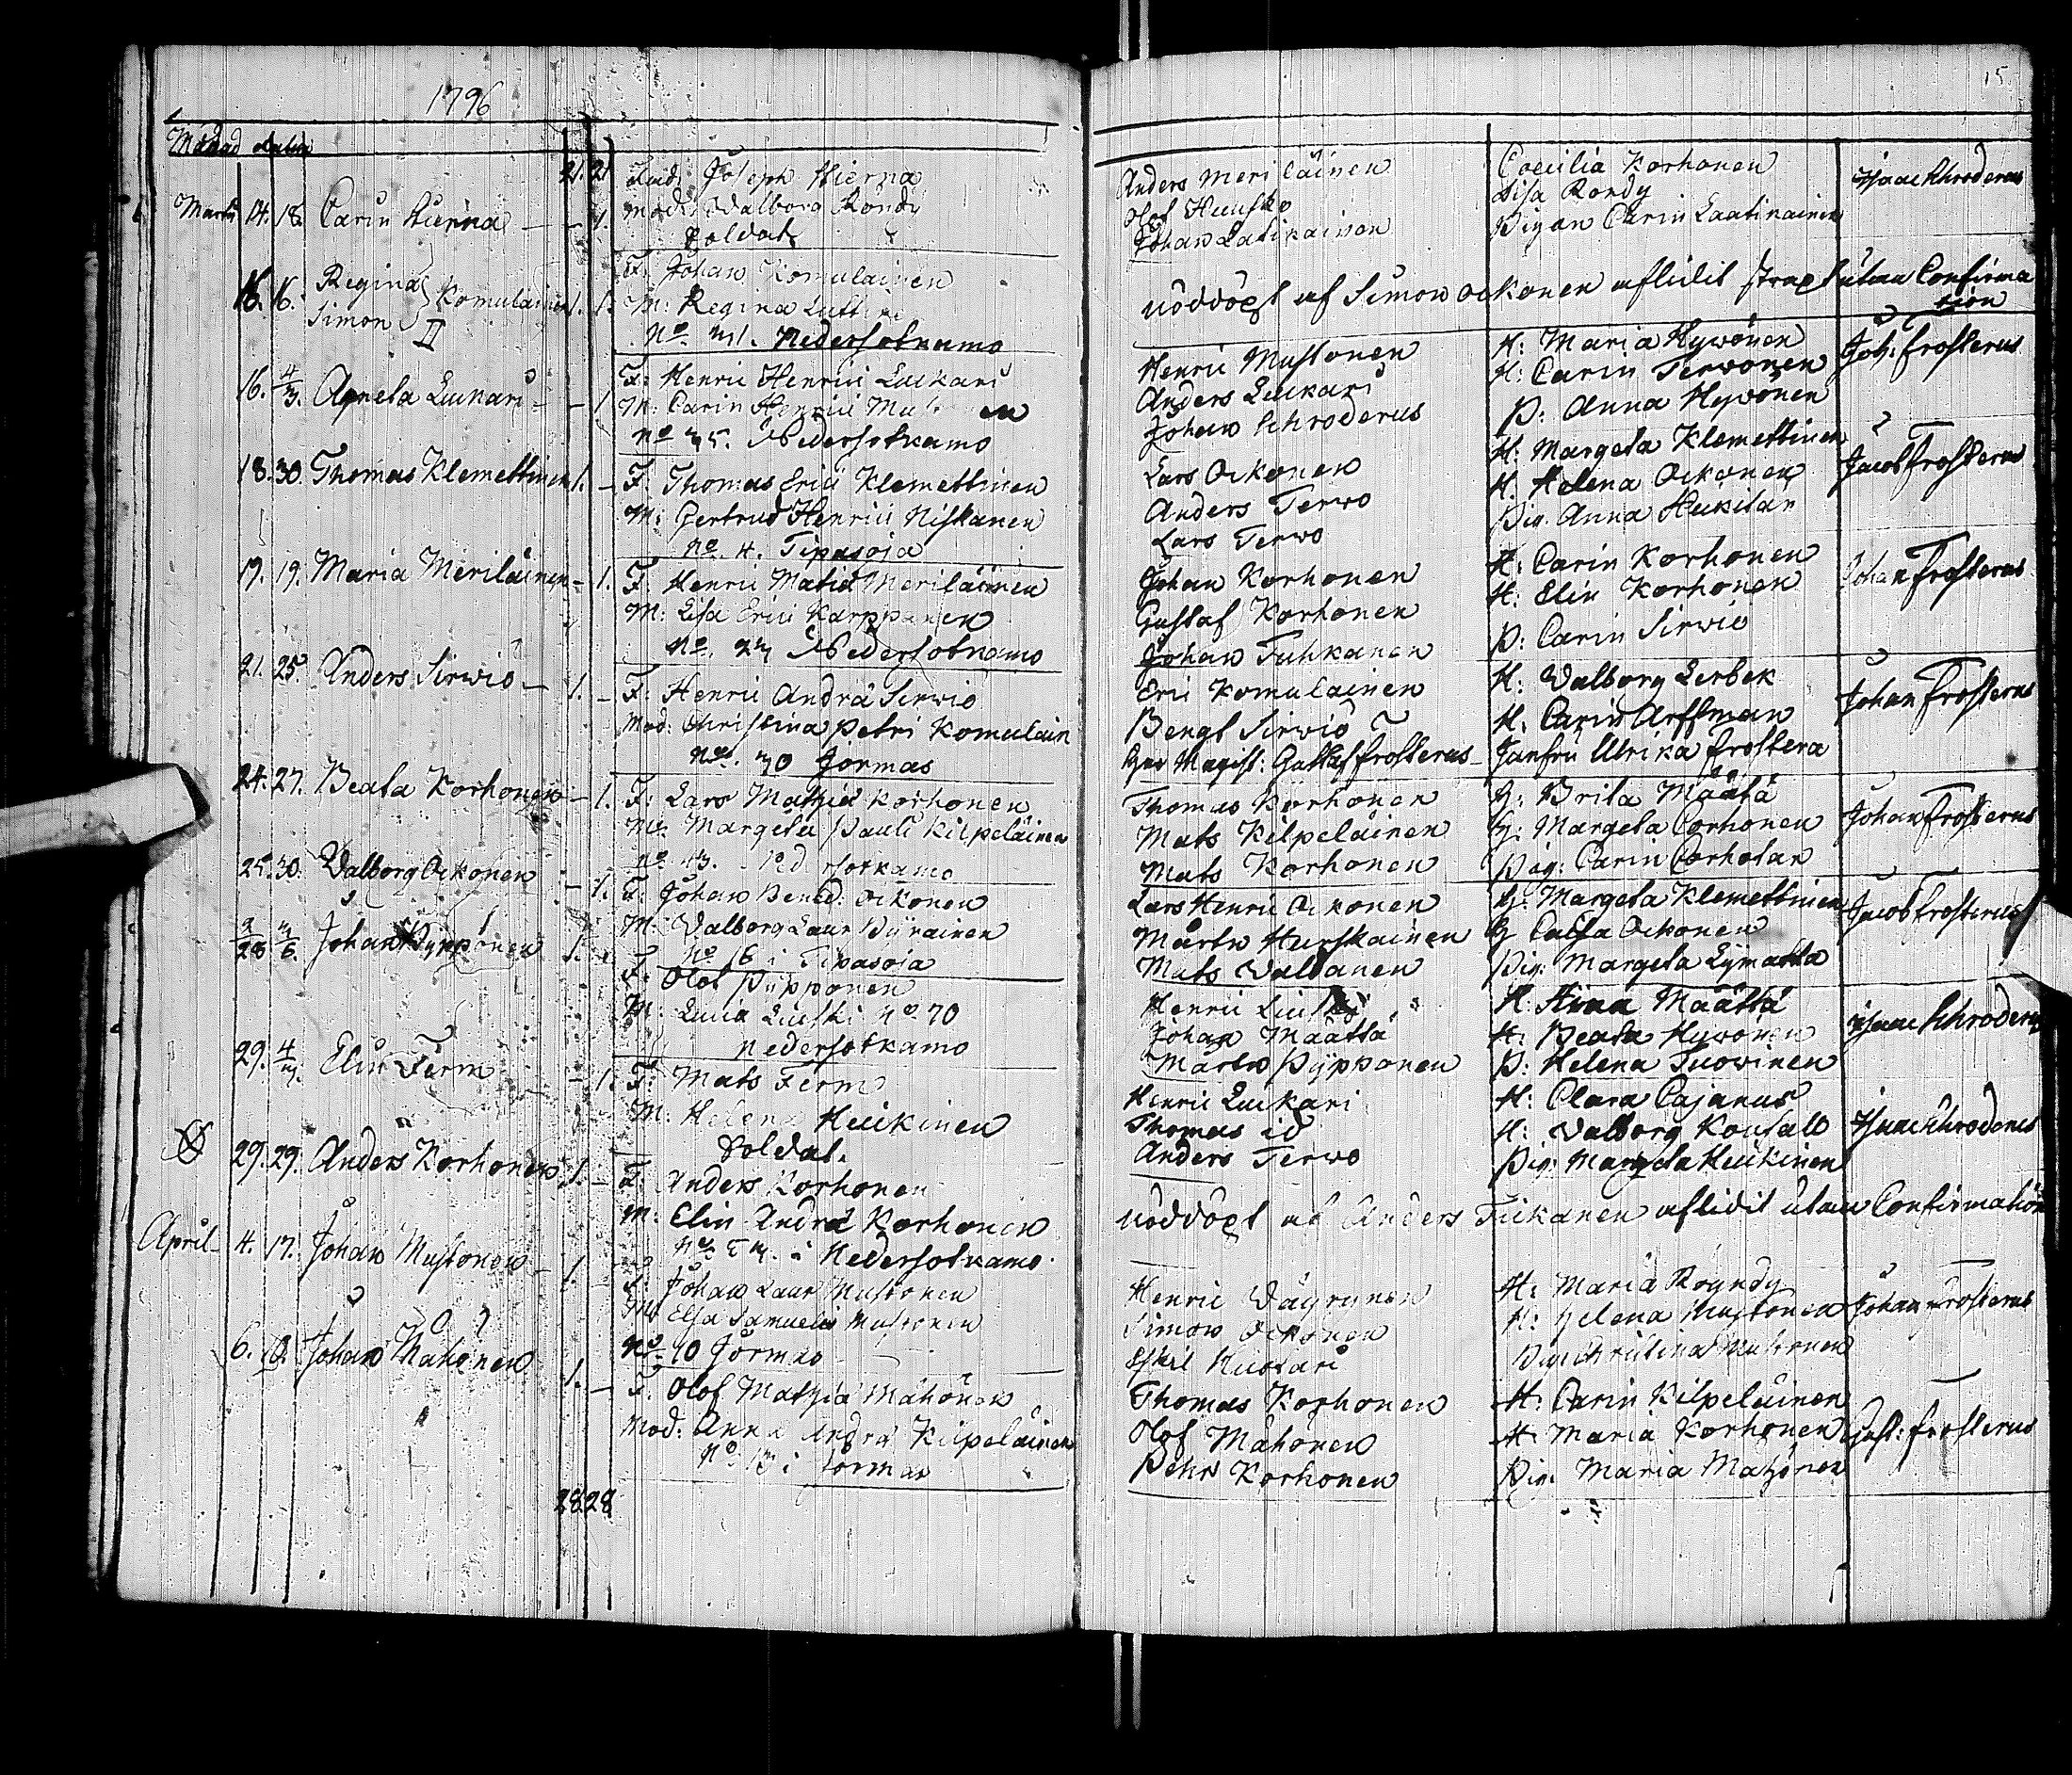 1796
15
Månad dator
21. 21
Martii 14. 18. Carin Hierna — - 1.
Fad: Joseph Hierna
Mod: Walborg Rondy
Soldat
Anders Meriläinen
Olof Huusko
Johan Latikainen
Coecilia Korhonen
Lisa Rondy
Pigan Carin Laatikainen
Isaac Schroderus
16. 16. Regina
Simon } Komulainen 1. 1.
II
F: Johan Komulainen
M: Regina
No 31. Nedersotkamo
nöddöpt af Simon Ockonen aflidit strax utan Confirma
tion
16. 4/3. Agneta Luckari - - 1.
F: Henric Henrici Luckari
M: Carin Henrici
No 35. Nedersotkamo
Henric Mustonen
Anders Luckari
Johan Schroderus
H: Maria Hywönen
H: Carin Terwonen
P: Anna Hywönen
Joh: Frosterus
18. 30. Thomas Klemettinen 1. -
F: Thomas Erici Klemettinen
M: Gertrud Henrici Niskanen
No. 4. Tipasoja
Lars Ockonen
Anders Terwo
Lars Terwo
H: Margeta Klemettinen
H. Helena Ockonen
Pig. Anna Heikitar
Jacob Frosterus
19. 19. Maria Meriläinen - 1.
F: Henric Matiæ Meriläinen
M: Lisa Erici Karppanen
No. 23 Nedersotkamo
Johan Korhonen
Gustaf Korhonen
Johan Tuhkanen
H: Carin Korhonen
H: Elin Korhonen
P: Carin Sirwio
Johan Frosterus
21. 25. Anders Sirwio — 1. -
F: Henric Andræ Sirwio
Mod: Christina Petri Komulain
No. 30 Jormas
Eric Komulainen
Bengt Sirwio
Magist: Gustaf Frosterus
H: Walborg Lerbek
H: Carin Arffman
Jungfru Ulrika Frostera
Johan Frosterus
24. 27. Beata Korhonen - 1.
F: Lars Mathiæ Korhonen
M: Margeta Pauli Kilpeläinen
No 43. Nedersotkamo
Thomas Korhonen
Mats Kilpeläinen
Mats Korhonen
H: Brita Määtä
H: Margeta Corhonen
Pig: Carin Corhotar
Johan Frosterus
25. 30. Walborg Ockonen - 1.
F: Johan Bened: Ockonen
M: Walborg Laur
No 16 i Tipasoja
Lars Henric Ockonen
Mårten Hurskainen
Mats Waltanen
H: Margeta Klemettinen
H Caisa Ockonen
Pig: Margeta Lymatta
Jacob Frosterus
2/28 3/6. Johan Pypponen 1. -
F: Olof Pypponen
M: Lucia Liuski No 70
Nedersotkamo
Henric Liuski
Johan Määttä
Mårten Pypponen
H. Anna Määttä
H: Beata Hywönen
P: Helena Tuowinen
Isaac Schroderus
29. 4/3. Elin Ferm - 1.
F: Mats Ferm
M: Helena Heikinen
Soldat.
Henric Luckari
Thomas id
Anders Terwo
H: Clara Cajanus
H: Walborg
Pig: Margeta Heikinen
Isaac Schroderus
29. 29. Anders Korhonen 1. -
F: Anders Korhonen
M: Elin Andræ Korhonen
i Nedersotkamo
nöddöpt af Anders Tuikanen aflidit utan Confirmation
April 4. 17. Johan Mustonen 1. -
F: Johan Laur Mustonen
M: Elsa Samuelis Mustonen
No 10 Jormas
Henric Wäyrynen
Simon Ockonen
Eskil Huotari
H: Maria Royndy
H: Helena Mustonen
Pig: Christina Mustonen
Johan Frosterus
6. 10. Johan Mähönen 1. -
F: Olof Mathiæ Mähönen
Mod: Anna Andræ Kilpeläinen
No 13 i Jormas
Thomas Korhonen
Olof Mähönen
Pehr Korhonen
H: Carin Kilpeläinen
H: Maria Korhonen
Pig. Maria Mähönen
Gust: Frosterus
28. 28